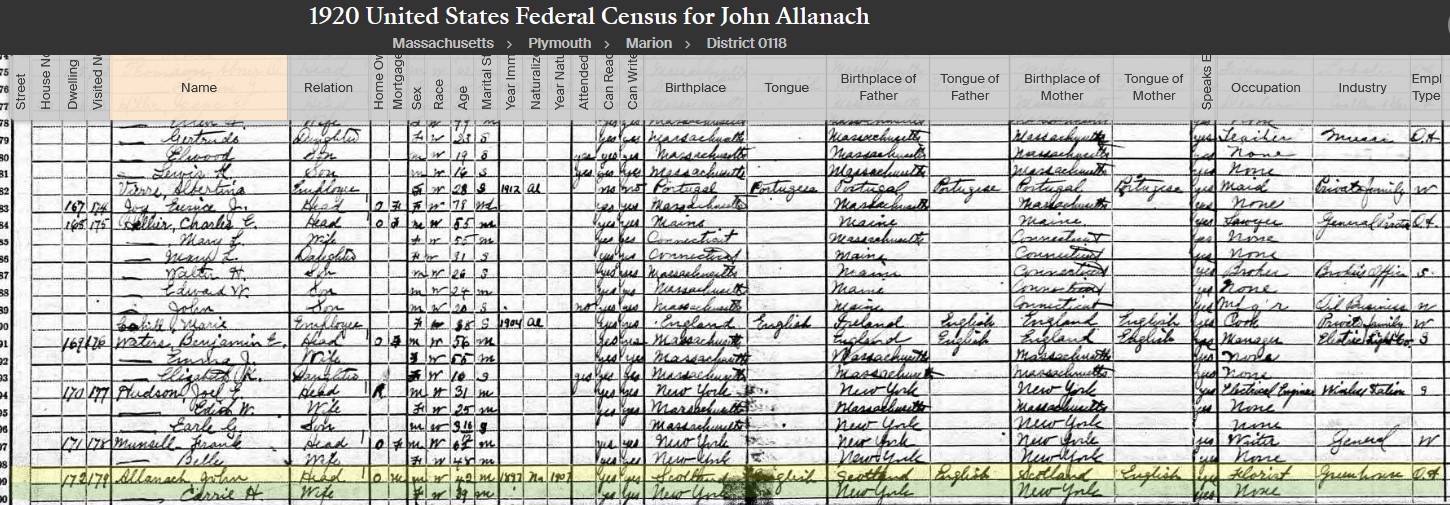 1920 United States Federal Census for John Allanach
Massachusetts > Plymouth > Marion > District 0118
Street House No Dwelling Visited Nu Name Relation Home Ow Mortgage Sex Race Age Marital St Year Imm Naturaliz Year Natu Attended Can Read Can Write Birthplace Tongue Birthplace of Father Tongue of Father Birthplace of Mother Tongue of Mother Speaks E Occupation Industry Empl Type
78 Wife
79 — Gertrude Daughter F W 23 S yes yes Massachusetts Massachusetts Massachusetts yes Teacher Music O.A
80 — Elwood Son m W 19 S yes yes yes Massachusetts Massachusetts Massachusetts yes None
81 — Lewis Son m W 16 S yes yes yes Massachusetts Massachusetts Massachusetts yes None
82 Albertina Employee F W 28 S 1912 Al no no Portugal Portugese Portugal Portugese Portugal Portugese yes Maid Private family W
83 167 174 Eunice J. Head O F F W 78 Wd yes yes Massachusetts Massachusetts Massachusetts yes None
84 168 175 Hellier, Charles E. Head O m W 55 m yes yes Maine Maine Maine yes Lawyer General O.A
85 — Mary L. Wife F W 55 m yes yes Connecticut Massachusetts Connecticut yes None
86 — Mary L. Daughter F W 31 S yes yes Connecticut Maine Connecticut yes None
87 — Walter H. Son m W 26 S yes yes Massachusetts Maine Connecticut yes Broker Brokers Office
88 — Edward W. Son m W 24 m yes yes Massachusetts Maine Connecticut yes None
89 — John Son m W 20 S no yes yes Massachusetts Maine Connecticut yes Mfg'r Oil Business W
90 Cahill, Marie Employee F W 38 S 1904 Al yes yes England English Ireland English England English yes Cook Private family W
91 169 176 Waters, Benjamin E. Head O m W 56 m yes yes Massachusetts England English England English yes Manager
92 — Emma J. Wife F W 55 m yes yes Massachusetts Massachusetts Massachusetts yes None
93 — Elizabeth K. Daughter F W 16 S yes yes yes Massachusetts Massachusetts Massachusetts yes None
94 170 177 Hudson, Joel Head R m W 31 m yes yes New York New York New York yes Electrical Engineer Wireless Station
95 — Edith W. Wife F W 25 m yes yes Massachusetts Massachusetts Massachusetts yes None
96 — Earle G. Son m W S Massachusetts New York New York none
97 171 178 Munsell, Frank Head O m W m yes yes New York New York New York yes Writer General W
98 — Belle Wife F W 48 m yes yes New York New York New York yes None
99 172 179 Allanach, John Head O M m W 42 m 1897 Na 1907 yes yes Scotland English Scotland English Scotland English yes Florist Greenhouse O.A
— Carrie H. Wife F W 39 m yes yes New York New York New York yes None